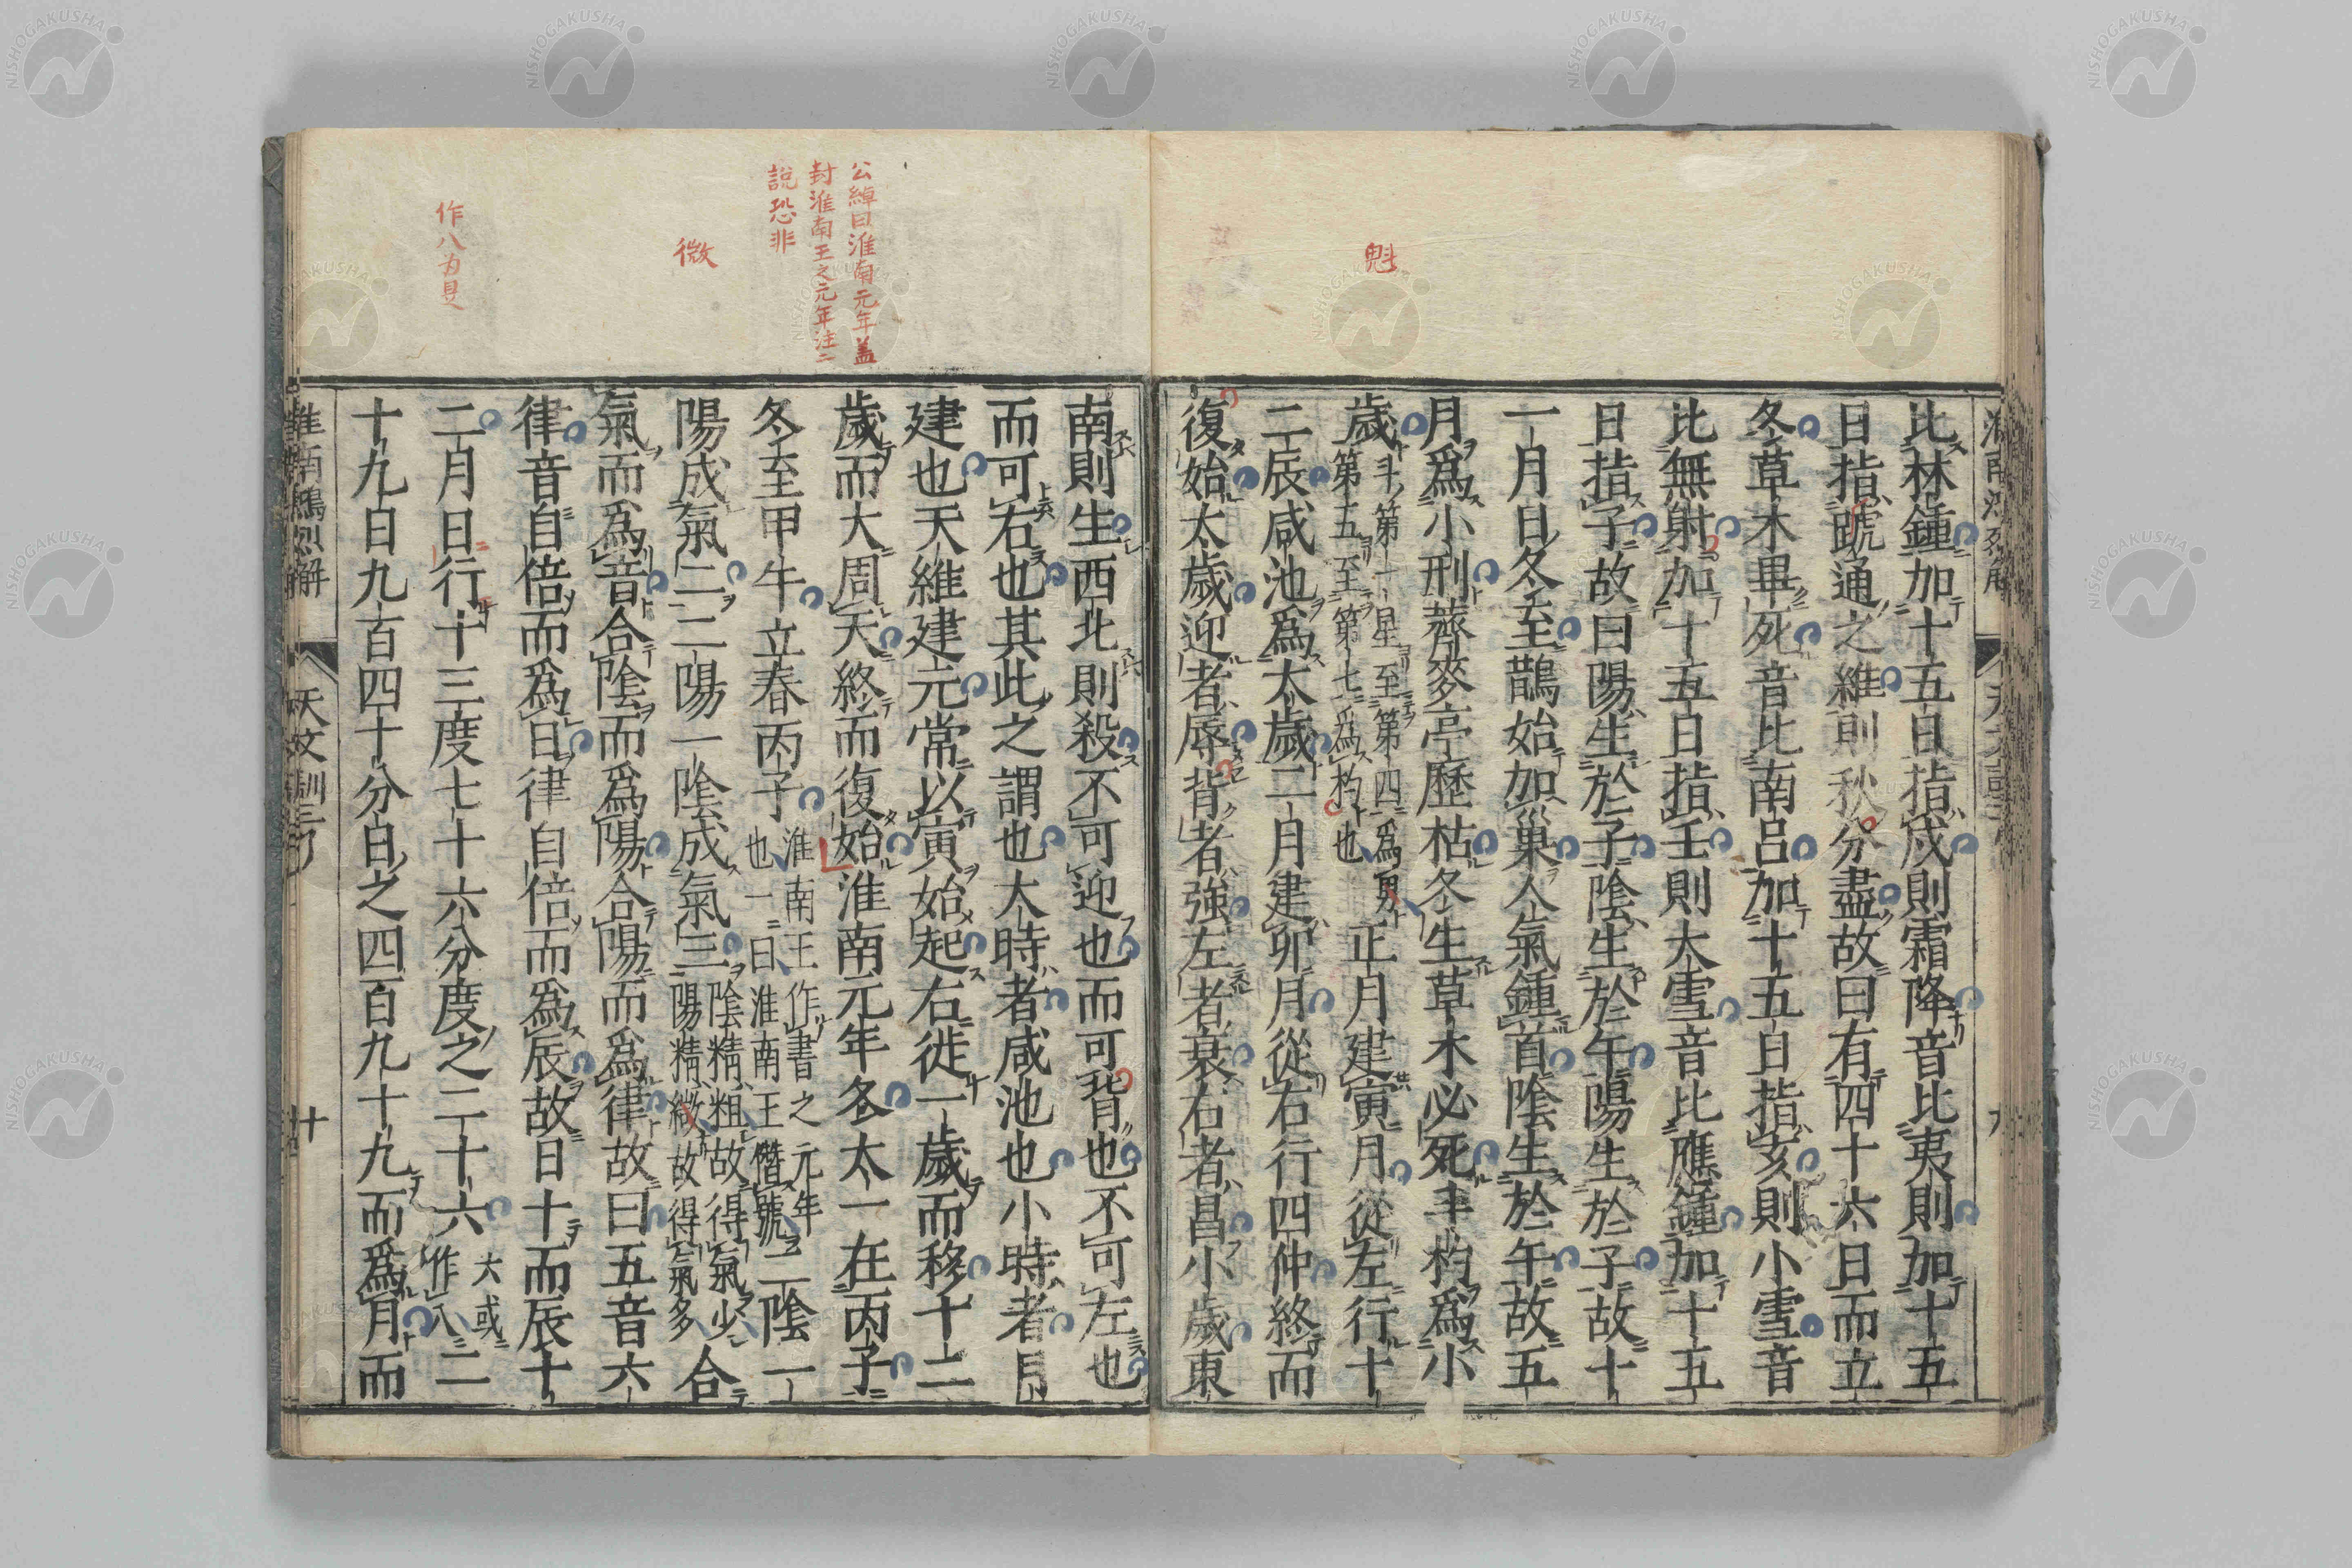 比林鍾加十五日指戌則霜降音比夷則加十五
日指蹏通之維則秋分盡故曰有四十六日而立
冬草木畢死音比南呂加十五日指亥則小雪音
比無射加十五日指壬則大雪音比應鍾加十五
日指子故曰陽生於子陰生於午陽生於子故十
一月日冬至鵲始加巢人氣鍾首陰生於午故五
月爲小刑薺麥亭歷枯冬生草木必死丰杓爲小
歲斗第一星至第四爲第五至第七爲杓也正月建寅月從左行十
魁
二辰咸池爲太歲二月建卯月從右行四仲終而
復始太歲迎者辱背者強左者衰右者昌小歲東
南則生西北則殺不可迎也而可背也不可左也
而可右也其此之謂也大時者咸池也小時者月
建也天維建元常以寅始起右徙一歲而移十二
歲而大周天終而復始淮南元年冬太一在丙子
公綽曰淮南元年蓋
封淮南王之元年注二
說恐非
冬至甲午立春丙子淮南王作書之元年也一曰淮南王僭號二陰一
陽成氣二二陽一陰成氣三陰精粗故得氣少陽精微故得氣多合
微
氣而爲音合陰而爲陽合陽而爲律故曰五音六
律音自倍而爲日律自倍而爲辰故日十而辰十
二月日行十三度七十六分度之二十六六或作八二
作八为是
十九日九百四十分日之四百九十九而爲月而
淮南鴻烈解 天文訓三 十